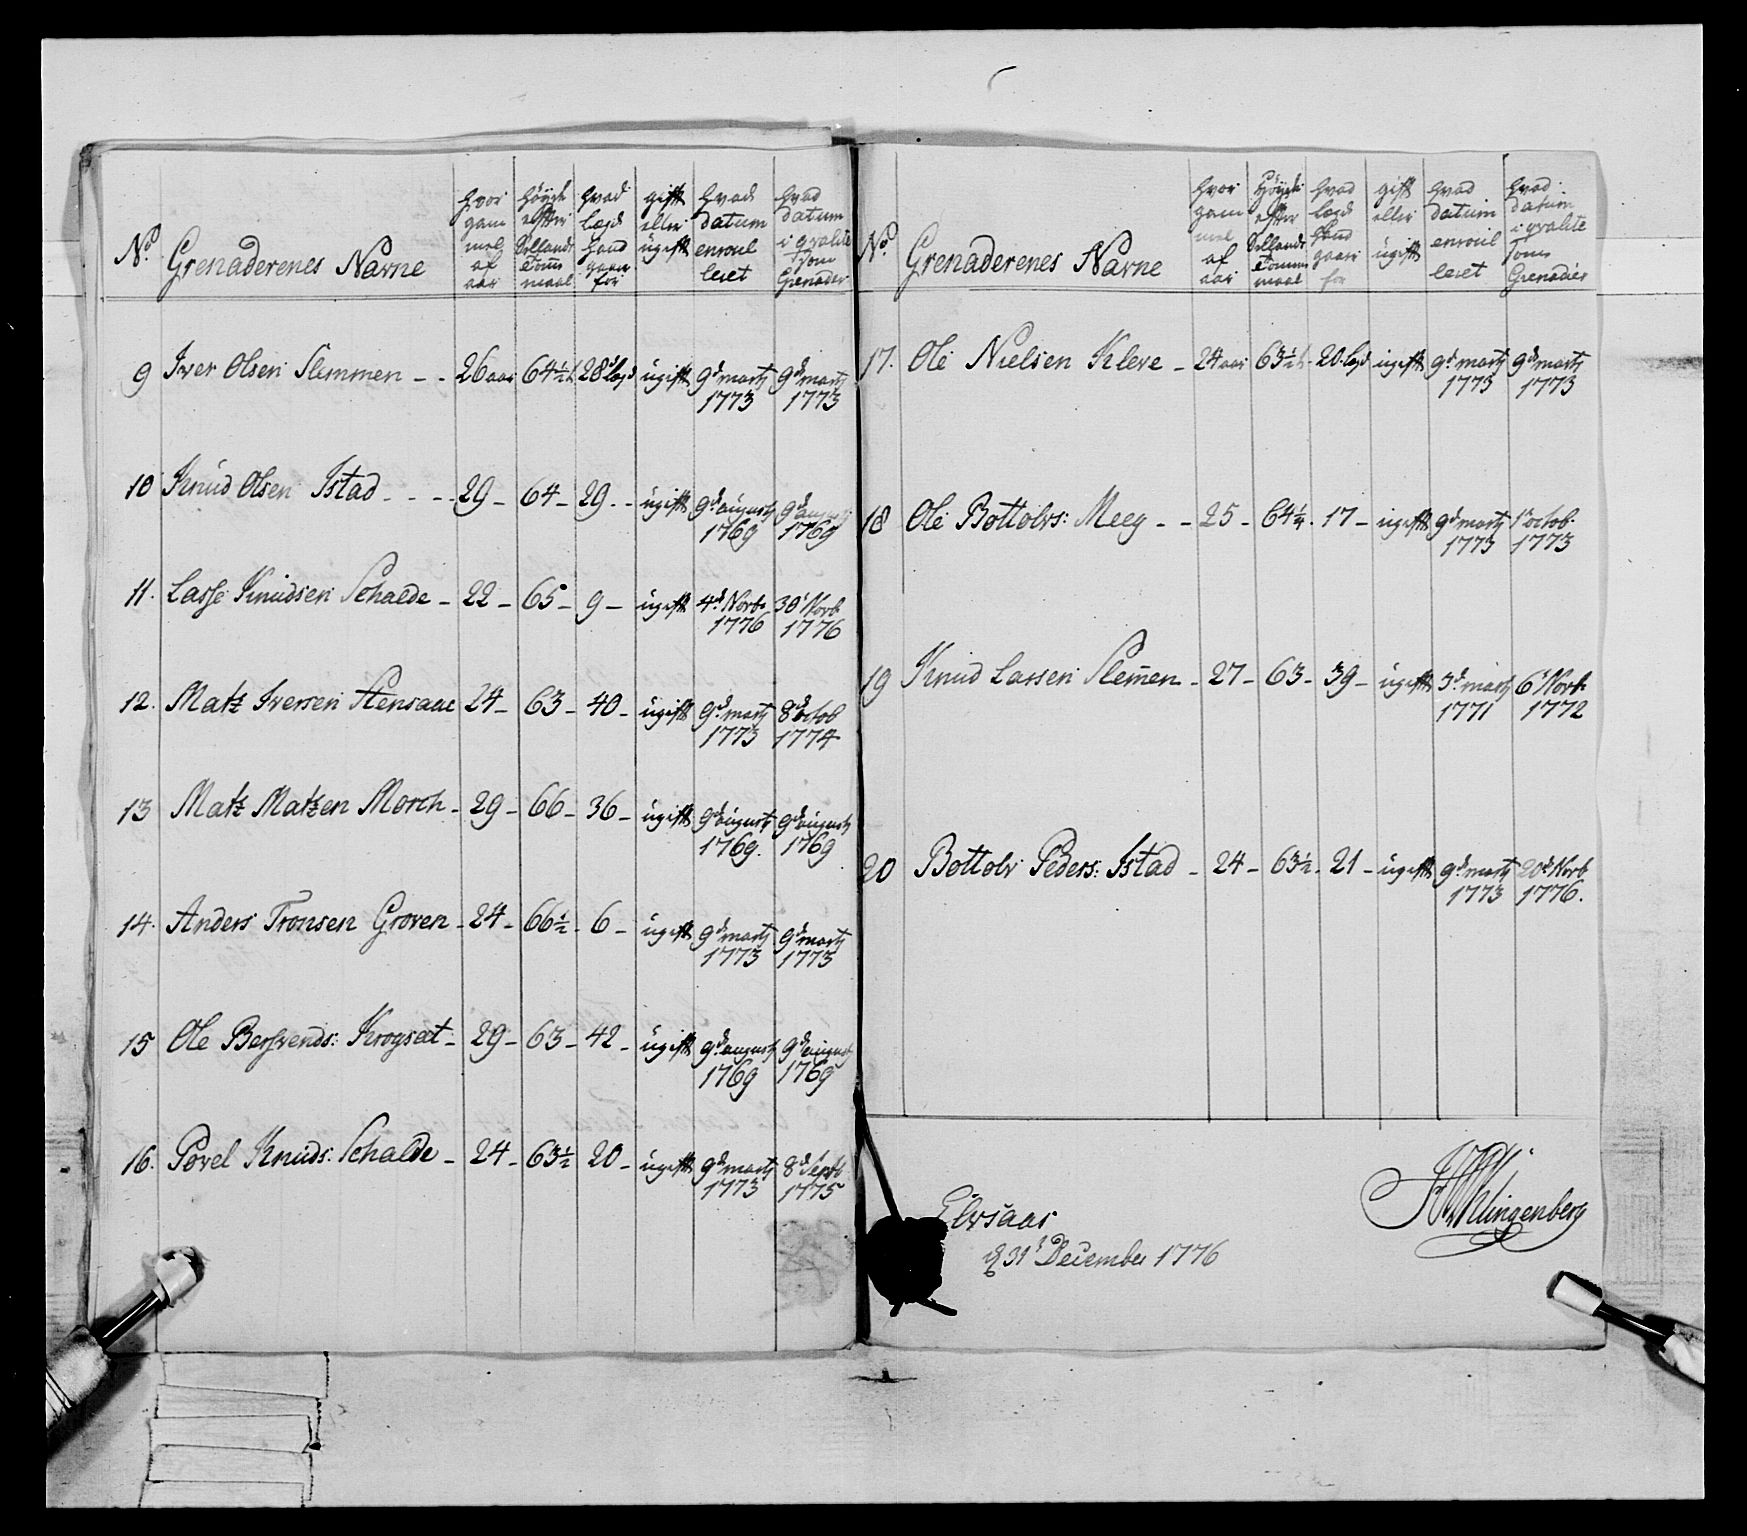 No. Grenaderenes Navne | hvor gam mel af aar | höyde effter Sellands tomme maal | hvad Legd hand gaar for | gift eller ugift | hvad datum enroul leret | hvad datum i qvalite som Grenader
9 Iver Olsen Slemmen - - 26 aar 64½ 28 Legd ugift 9d marty 1773 9d marty 1773
10 Knud Olsen Istad - - - - 29 - 64 - 29 - - ugift 9d augusty 1769 9d augusty 1769
11. Lasse Knudsen Schalde - 22 - 65 - 9 - ugift 4d Novb. 1776 30' Novb 1776
12. Matz Iversen Stensaae 24 - 63 - 40 - ugift 9d marty 1773 8d octob 1774
13 Matz Matzen Morch - 29 - 66 - 36 - ugift 9d augusty 1769. 9d augusty 1769
14. Anders Tronsen Groven - 24 - 66½ - 6 - ugift 9d marty 1773 9d marty 1773
15 Ole Bersvends: Krogsæt - 29 - 63 - 42 - ugift 9d augusty 1769 9d augusty 1769
16. Povel Knuds: Schalde - 24 - 63½ 20 - ugift 9d marty 1773 8d Septb 1775
No. Grenaderenes Navne | hvor gam mel af aar | Höyde effter Sellands tomme maal | hvad Legd hand gaar for | gift eller ugift | hvad datum enroul leret | hvad datum i qvalite som Grenader
17. Ole Nielsen Kleve - 24 aar 63½ 20 Legd ugift 9d marty 1773 9d marty 1773
18 Ole Bottolvs: Meey - - 25 - 64¼ - 17 - ugift 9d marty 1773 1' octob. 1773
19 Knud Lassen Slem̄en - 27 - 63 - 39 - ugift 3d marty 1771 6' Novb. 1772
20 Bottolv Peders: Istad - 24 - 63½ - 21 - ugift 9d marty 1773 20d Novb 1776.
Elvsaas
d 31' December 1776
Klingenberg